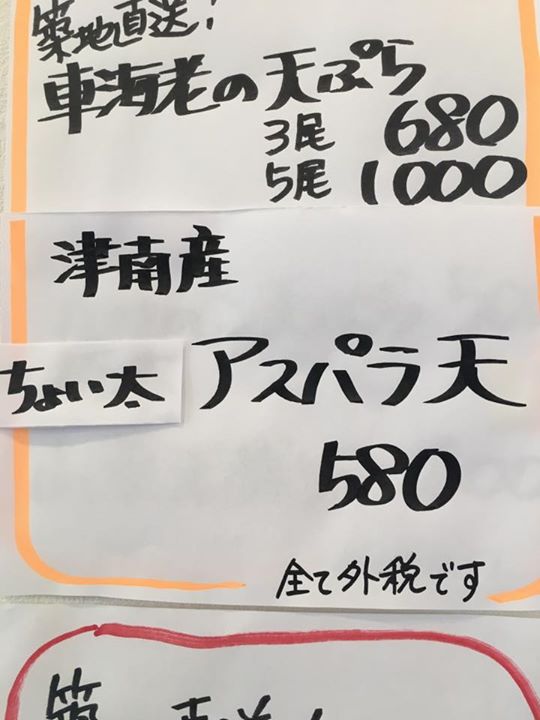 築地直送!
車海老の天ぷら
3尾 680
5尾 1000
津南産
ちょい太 アスパラ天
580
全て外税です
築